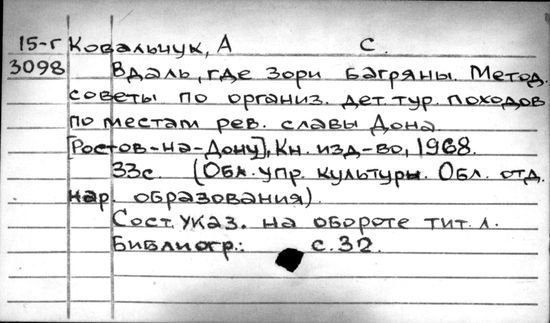 15-г Ковальчук, А С.
3098 Вдаль, где зори багряны. Метод.
советы по организ. дет. тур. походов
по местам рев. славы Дона.
[Ростов-на-Дону], Кн. изд-во, 1968.
33с. (Обл. упр. культуры. Обл. отд.
нар. образования).
Сост. указ. на обороте тит. л.
Библиогр.: с. 32.